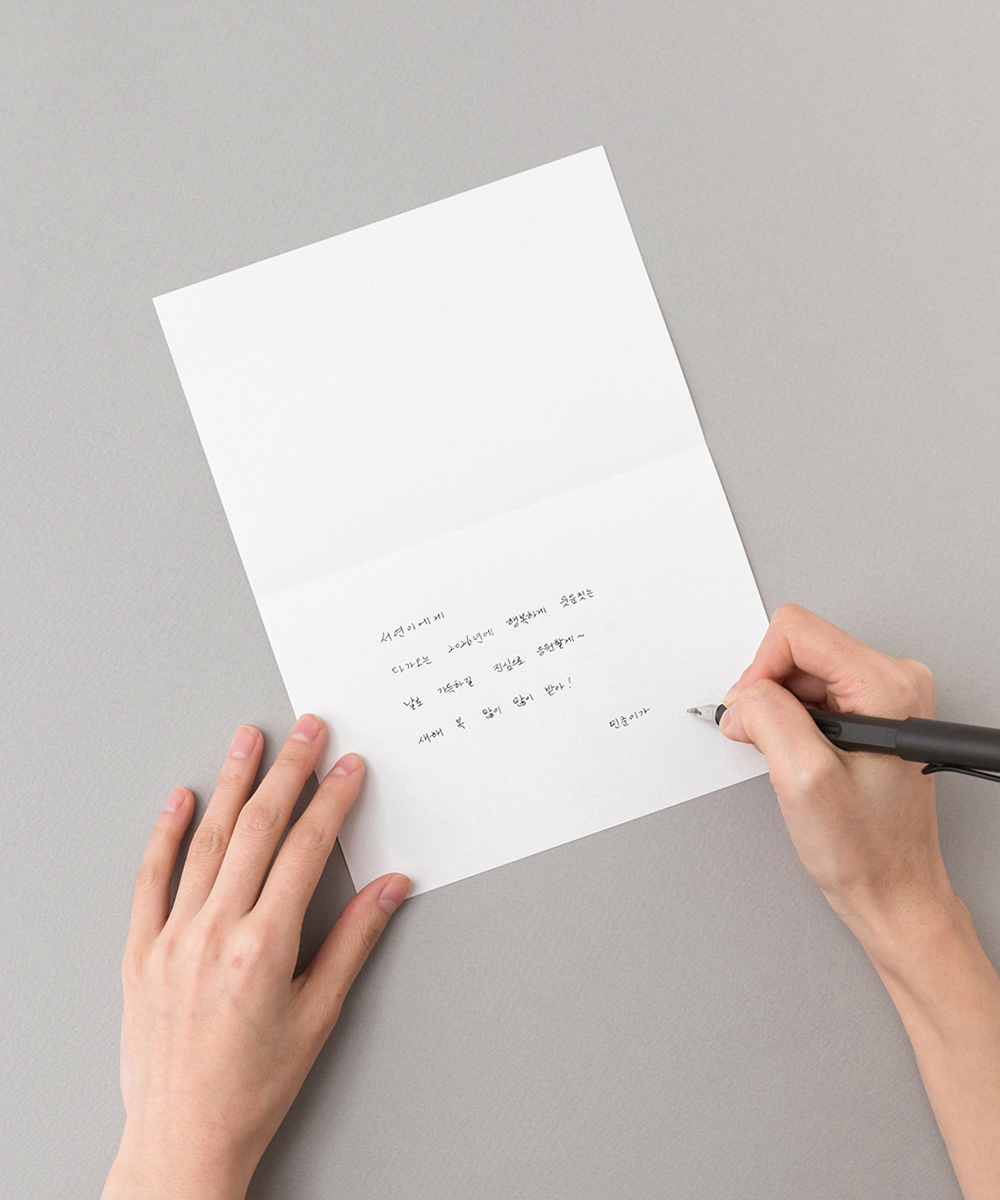 서연이에게
다가오는 2026년에 행복하게 웃음짓는
날로 가득하길 진심으로 응원할게~
새해 복 많이 많이 받아!
민준이가